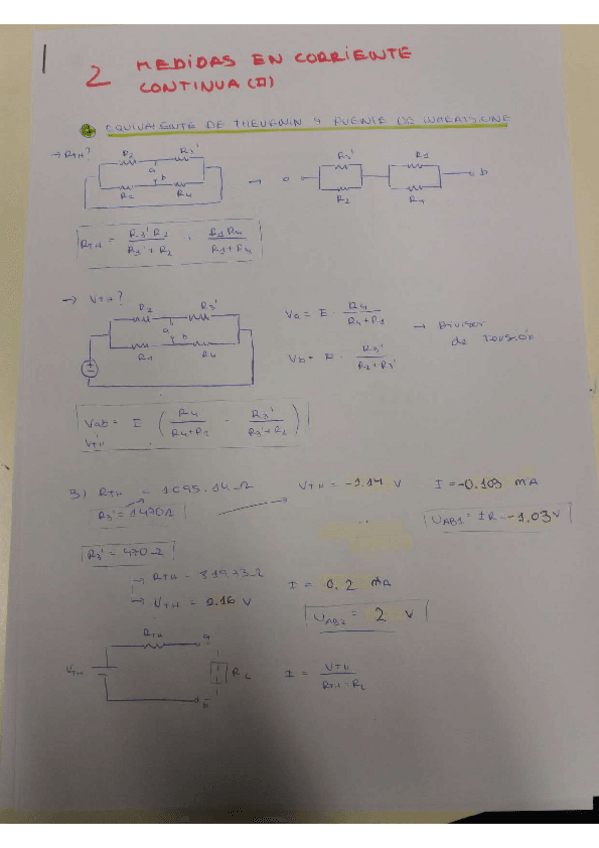 2 MEDIDAS EN CORRIENTE
CONTINUA (II)
EQUIVALENTE DE THEVENIN Y PUENTE DE WHEATSTONE
→ RTH?
R2 R3'
a b
R2 R4
→ a R3' R2 R1 R4 b
RTH = R3' R2 / R3' + R2 · R1 R4 / R1 + R4
→ VTH?
R2 R3'
a b
R1 R4
Va = E · R4 / R1 + R2
→ Divisor de tensión
Vb = E · R3' / R2 + R3'
Vab = E ( R4 / R4 + R1 - R3' / R3' + R2 )
VTH
3) RTH = 1095.14 Ω VTH = -1.14 V I = -0.103 mA
R3' = 1470 Ω
UAB1 = IR = -1.03 V
R3' = 470 Ω
→ RTH = 319.73 Ω
I = 0.2 mA
→ VTH = 2.16 V
UAB2 = 2 V
RTH a
VTH
RL
b
I = VTH / RTH - RL